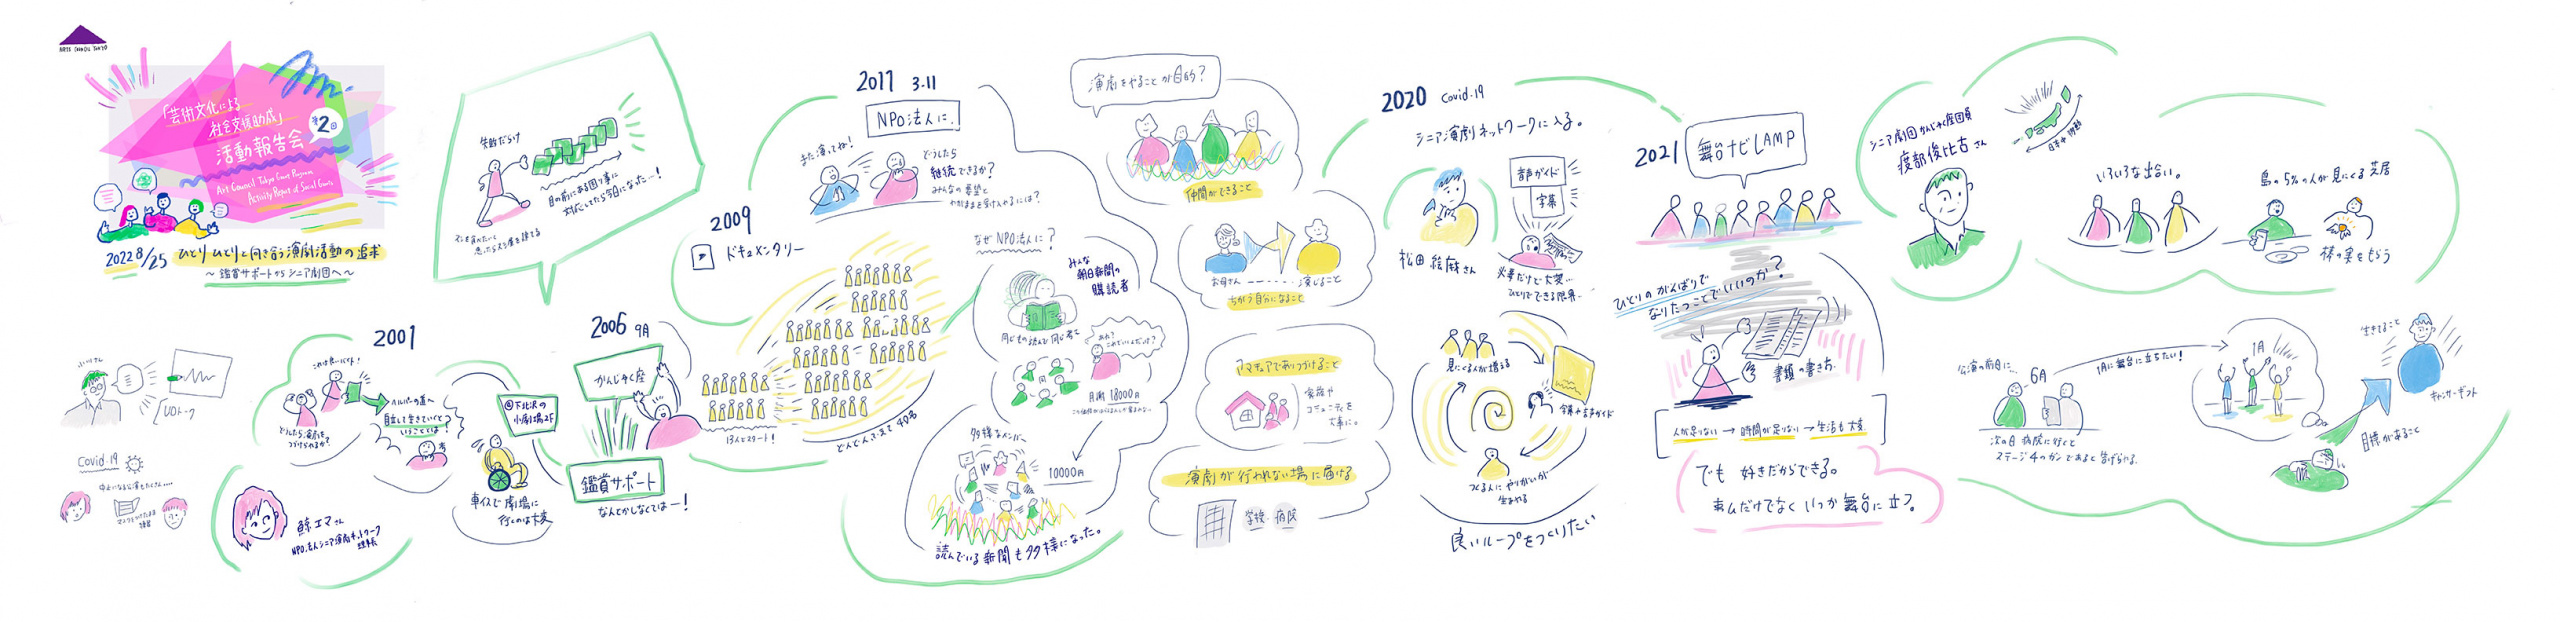 ARTS COUNCIL TOKYO
「芸術文化による
社会支援助成」
第2回
活動報告会
Art Council Tokyo Grant Program
Activity Report of Social Grants
2022 8/25 ひとりひとりと向き合う演劇活動の追求
～鑑賞サポートからシニア劇団へ～
UDトーク
Covid-19
中止になる公演もたくさん…
マスクをつけたまま
鯨エマさん
NPO法人シニア演劇ネットワーク
理事長
失敗だらけ
目の前にある困り事に
対応してたら今日になった…!
2001
これは良いバイト!
どうしたら演劇を
つづけられるか?
ヘルパーの道へ
自立して生きていくと
いうこととは?
@下北沢の
小劇場2F
車イスで劇場に
行くのは大変
2006 9月
かんじゅく座
鑑賞サポート
なんとかしなくてはー!
2009
ドキュメンタリー
13人とスタート!
どんどんふえて40人
2011 3.11
NPO法人に.
また演ってね!
どうしたら
継続できるか?
みんなの要望と
なぜNPO法人に?
みんな
朝日新聞の
購読者
同じもの読んで同じ考え
あれ?
これでいいんだっけ?
月謝 18000円
多様なメンバー
10000円
読んでいる新聞も多様になった。
演劇をやることが目的?
仲間ができること
お母さん 演じること
ちがう自分になること
アマチュアでありつづけること
家族や
コミュニティを
大事に。
演劇が行われない場に届ける
学校・病院
2020 Covid-19
シニア演劇ネットワークに入る。
松田 絵麻さん
音声ガイド
字幕
必要だけど大変…
ひとりでできる限界…
見にくる人が増える
字幕や音声ガイド
つくる人にやりがいが
生まれる
良いループをつくりたい
2021
舞台ナビLAMP
ひとりのがんばりで
なりたつことでいいのか?
書類の書き方.
人が足りない→時間が足りない→生活も大変.
でも 好きだからできる。
事ムだけでなく いつか舞台に立つ。
シニア劇団かんじゅく座団員
渡部俊比古さん
日本中移動
いろいろな出会い。
島の5%の人が見にくる芝居
椿の実をもらう
公演の前日に…
6月
1月に舞台に立ちたい!
1月
次の日 病院に行くと
ステージ4のガンであると告げられる.
生きてること
キャンサーギフト
目標があること